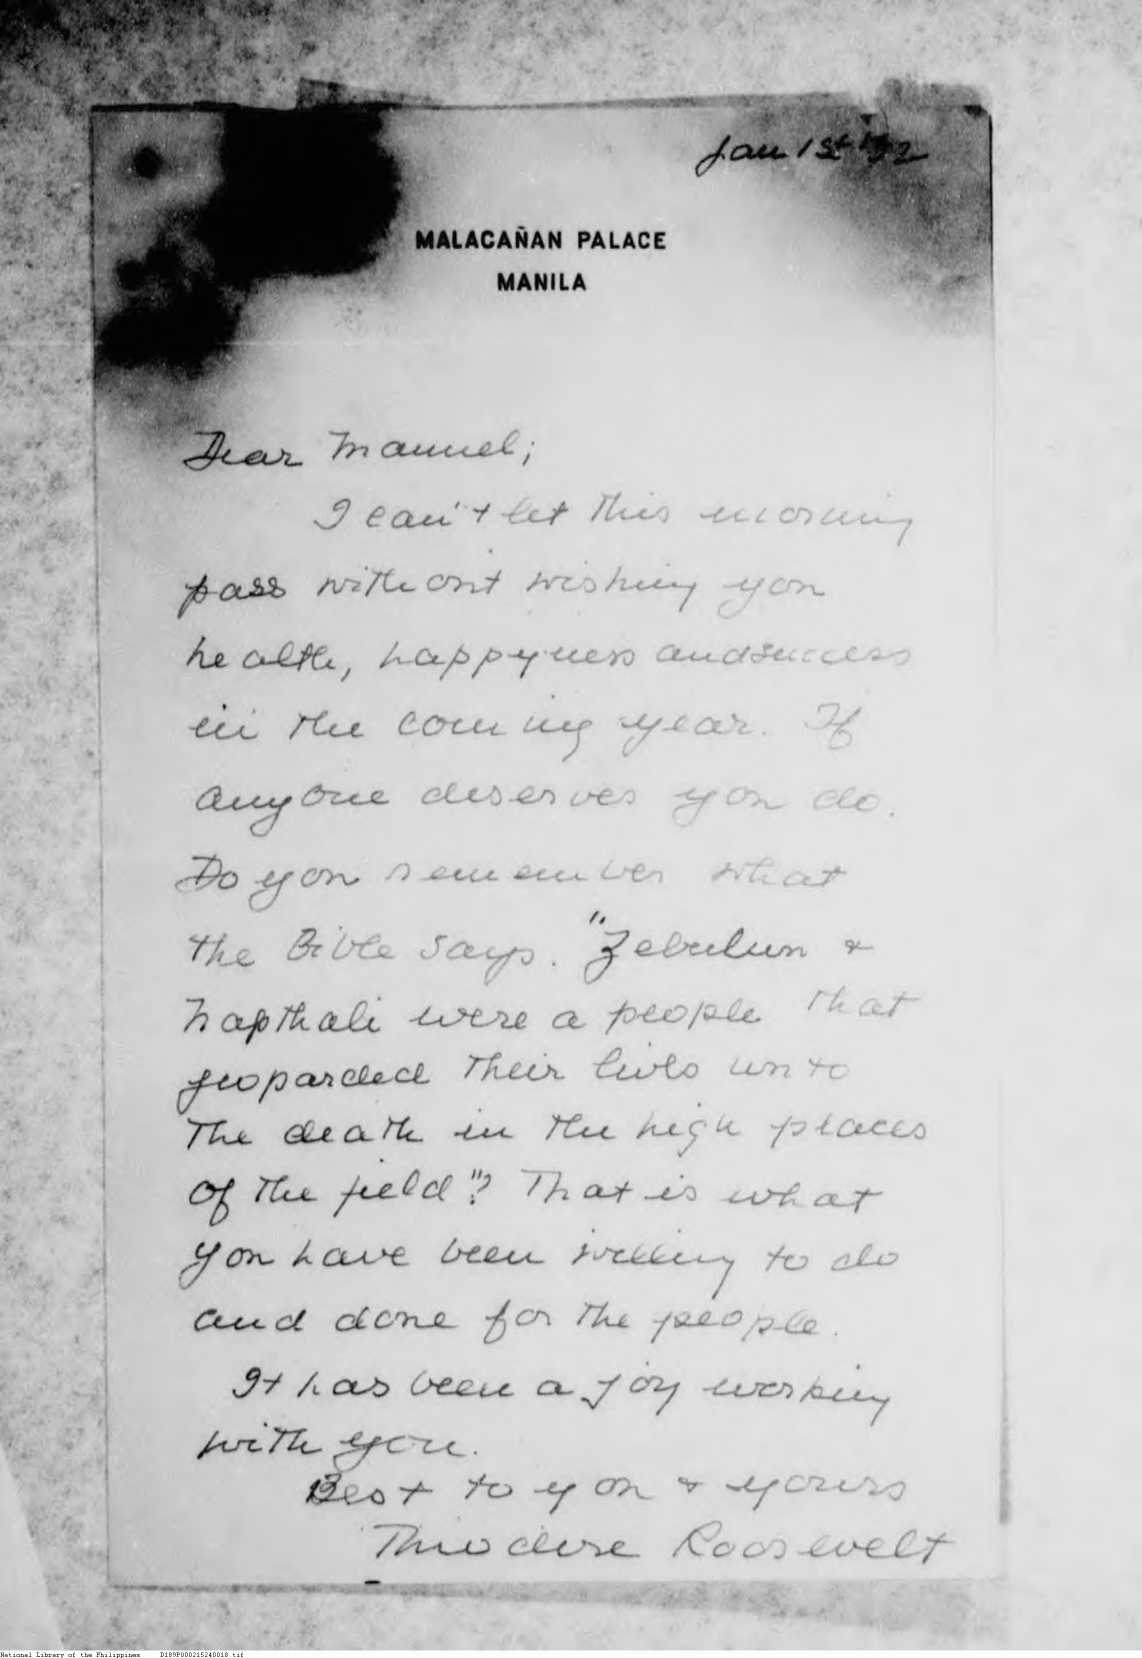 Jan 1st '32
MALACAÑAN PALACE
MANILA
Dear Manuel;
I can't let this morning
pass without wishing you
health, happyness and success
in the coming year. If
anyone deserves you do.
Do you remember what
the Bible says. "Zebulun &
Napthali were a people that
jeoparded their lives unto
the death in the high places
of the field"? That is what
you have been willing to do
and done for the people.
It has been a joy working
with you.
Best to you & yours
Theodore Roosevelt
National Library of the Philippines D189P000215240018.tif